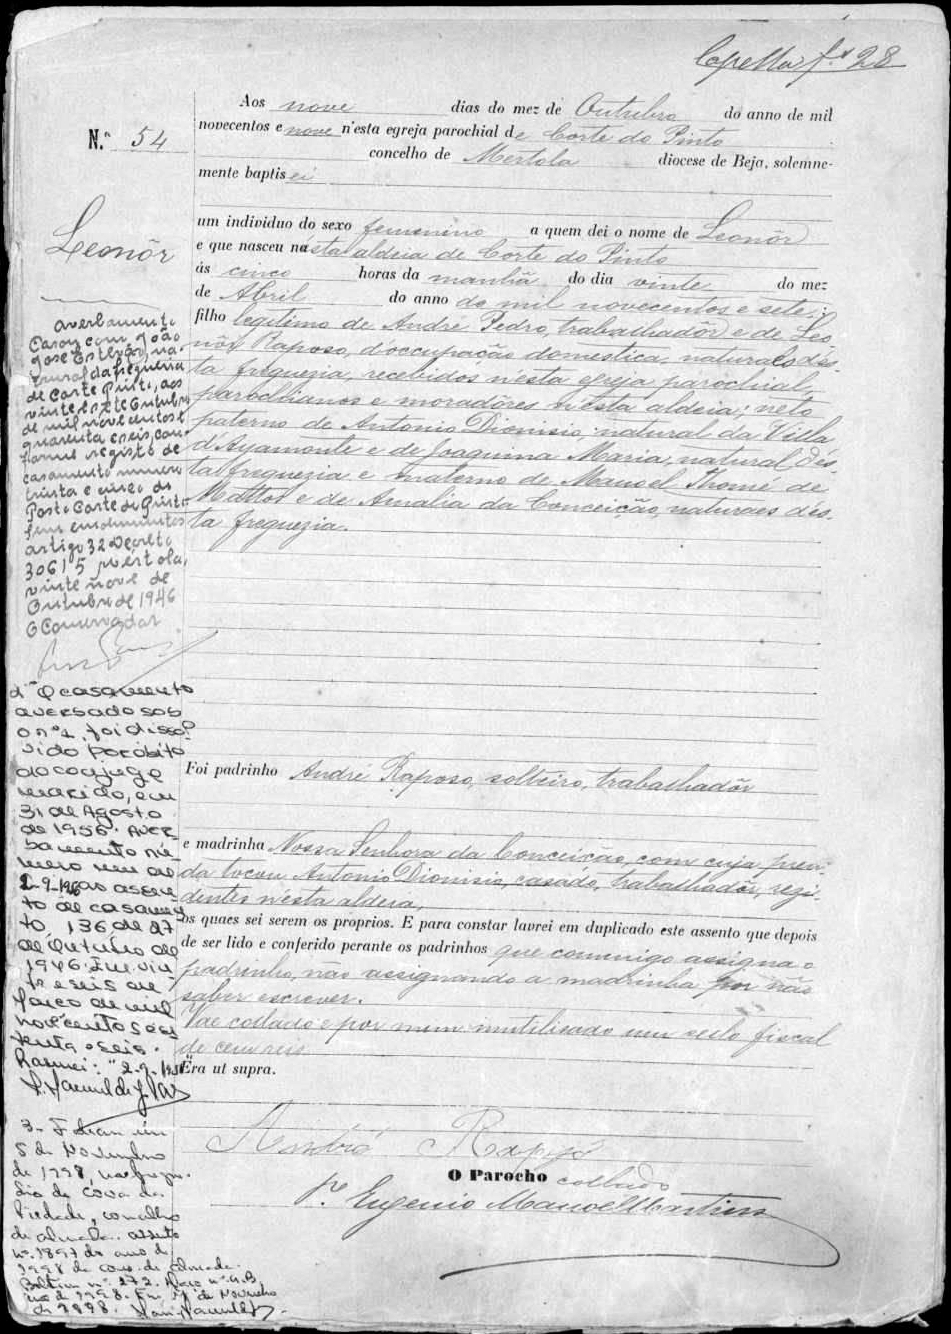 Capella f.s 28
Aos nove dias do mez de Outubro do anno de mil
novecentos e nove n'esta egreja parochial de Corte do Pinto
N.º 54
concelho de Mertola diocese de Beja, solemne-
mente baptisei
Leonôr
um individuo do sexo femenino a quem dei o nome de Leonôr
e que nasceu nésta aldeia de Corte do Pinto
ás cinco horas da manhã do dia vinte do mez
de Abril do anno de mil novecentos e sete:
filho legitimo de André Pedro, trabalhadôr e de Leo-
nôr Raposo, d'occupação domestica, naturaes dés-
ta freguezia, recebidos n'ésta egreja parochial,
parochianos e moradôres n'ésta aldeia; neto
paterno de Antonio Dionisio, natural da Villa
d'Ayamonte e de Joaquina Maria, natural dés-
ta freguezia e materno de Manoel Thomé de
Mattos e de Amalia da Conceição, naturaes dés-
ta freguezia.
Averbamento
Casou com João
José Estevão, na-
tural da freguezia
de Corte Pinto, aos
vinte e sete Outubro
de mil novecentos e
quarenta e seis, con-
forme registo de
casamento numero
trinta e cinco do
Posto Corte do Pinto.
Sem emolumentos
artigo 32 Decreto
30615 Mértola,
vinte nove de
Outubro de 1946
O Conservador
O casamento
averbado sob
o nº 1, foi dissol-
vido por óbito
do conjuge
marido, em
31 de Agosto
de 1956. Aver-
bamento nú-
mero um de
ao assen-
to de casamen-
to, 136 de 27
de Outubro de
1946. Em vin-
te e seis de
Março de mil
novecentos e ses
senta e seis.
Foi padrinho André Raposo, solteiro, trabalhadôr
e madrinha Nossa Senhora da Conceição, com cuja pren-
da tocou Antonio Dionisio, casado, trabalhadôr, resi-
dentes n'ésta aldeia,
os quaes sei serem os proprios. E para constar lavrei em duplicado este assento que depois
de ser lido e conferido perante os padrinhos que commigo assigna o
padrinho, não assignando a madrinha por não
saber escrever.
Vae collado e por mim inutilisado um sello fiscal
de cem reis
Era ut supra.
André Rapozo
O Parocho collado
P.e Eugenio Manoel Martins
3- Faleceu em
5 de Novembro
de 1998, na fregue-
sia de Cova da
Piedade, concelho
de Almada. assento
nº. 1897 do ano de
1998 da cons. de Almada.
Boletim nº 272. Maço nº 4.B.
ano de 1998. Em de Novembro
de 1998.